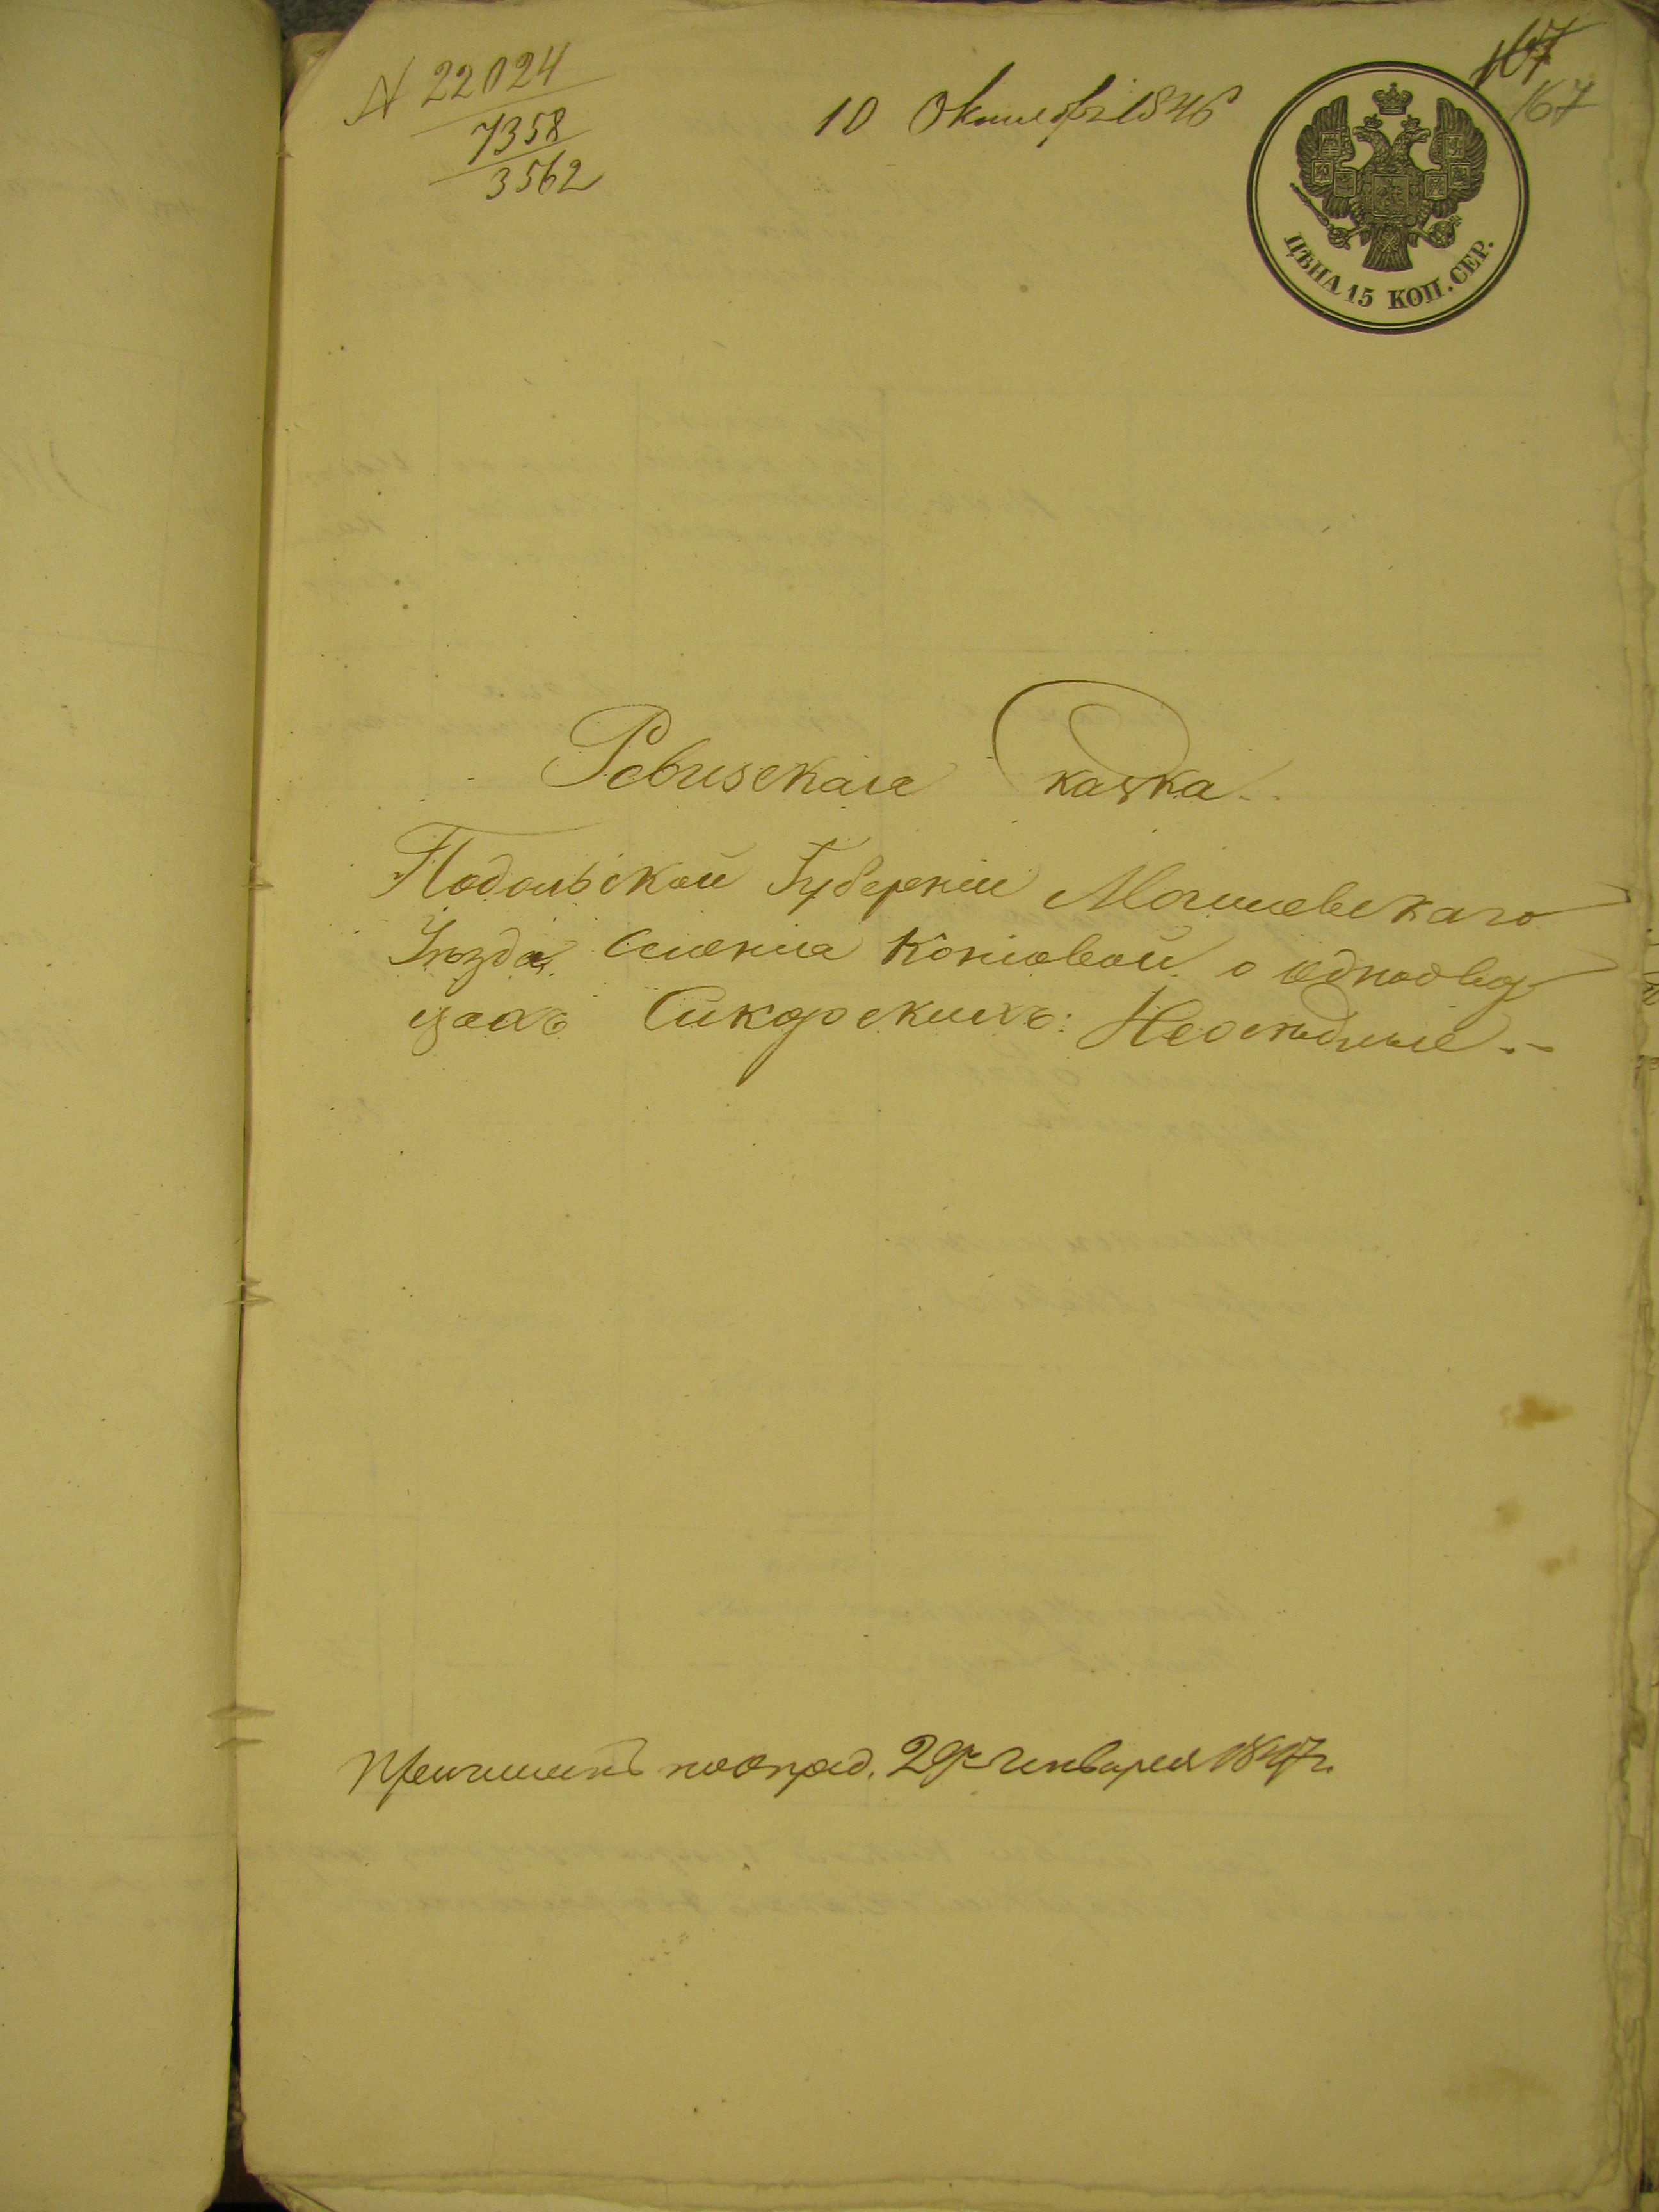 № 22024
7358
3562
10 Октября 1846
167
167
ЦѢНА 15 КОП. СЕР.
Ревизская Сказка
Подольской Губерніи Могилевскаго
Уѣзда Селенія Конювой о однодвор
цахъ Сикорскихъ: Неосѣдлые
29го Января 1847г.